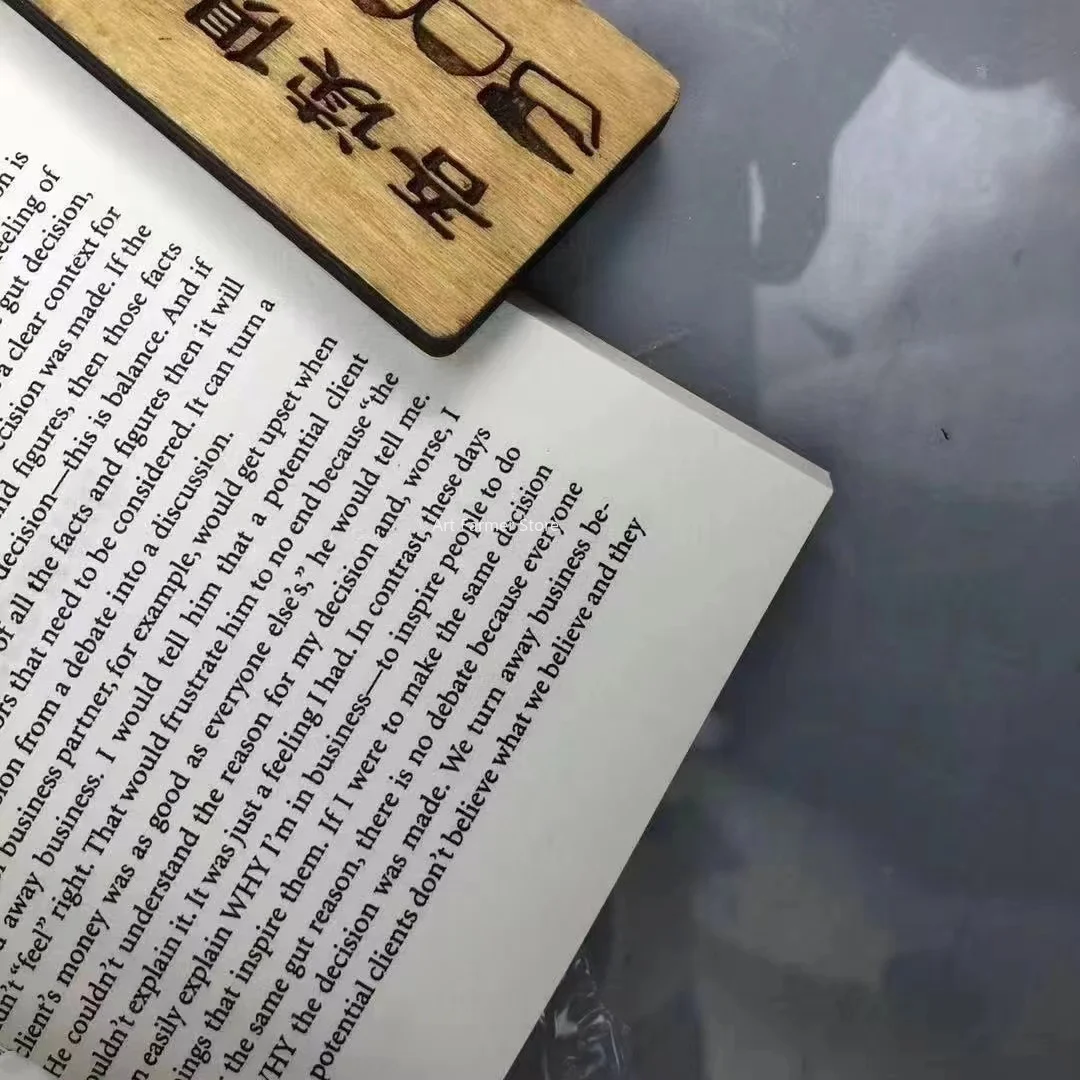 吾读
on is
eeling of
gut decision,
a clear context for
cision was made. If the
nd figures, then those facts
decision—this is balance. And if
of all the facts and figures then it will
ors that need to be considered. It can turn a
sion from a debate into a discussion.
business partner, for example, would get upset when
away business. I would tell him that a potential client
dn't “feel” right. That would frustrate him to no end because “the
client's money was as good as everyone else's,” he would tell me.
He couldn't understand the reason for my decision and, worse, I
ouldn't explain it. It was just a feeling I had. In contrast, these days
n easily explain WHY I'm in business—to inspire people to do
ings that inspire them. If I were to make the same decision
the same gut reason, there is no debate because everyone
WHY the decision was made. We turn away business be-
potential clients don't believe what we believe and they
Art Farmer Store